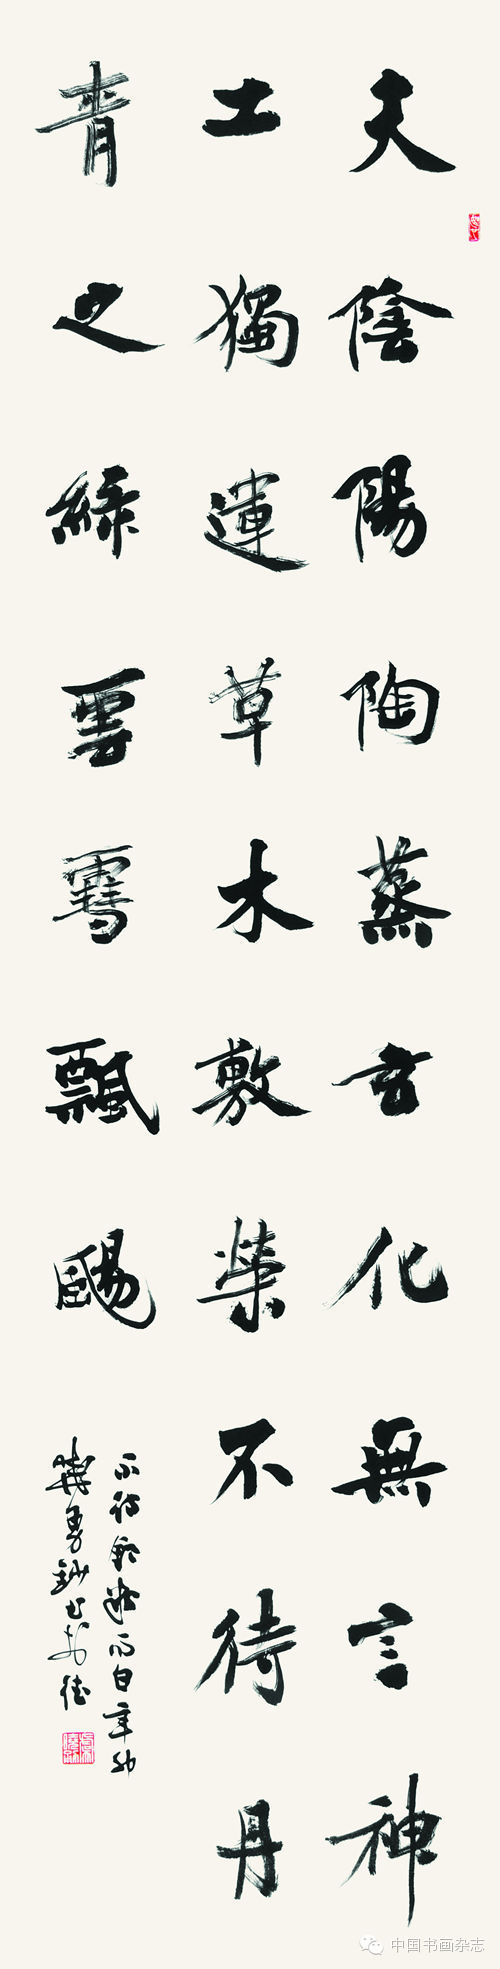 天陰陽陶蒸玄化無言神
工獨運草木敷榮不待丹
青之綠雲雪飄颺
中国书画杂志